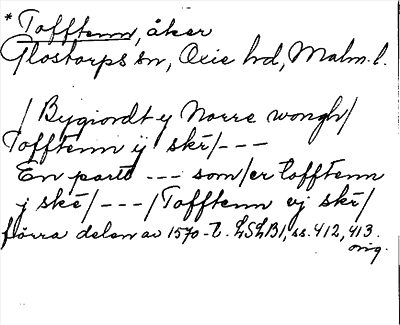 * Tofftenn, åker
Glostorps sn, Oxie hd, Malm. l.
/ Bygiordt y Norre wongh/
Tofftenn ij skr/---
En part --- som/er tofftenn
j skr/---/Tofftenn vj skr/
förra delen av 1570-t. LSLB1, ss. 412, 413.
orig.